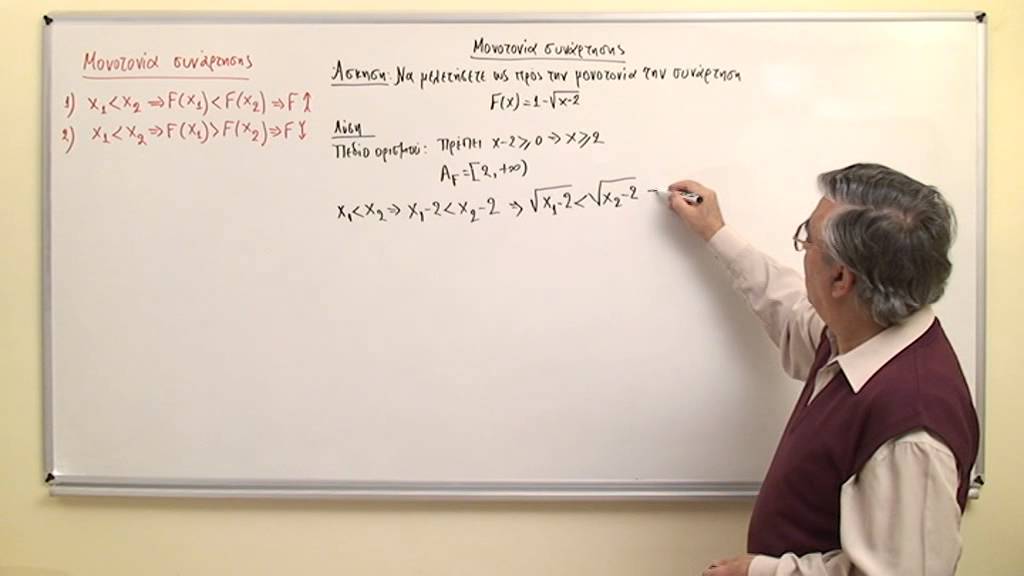 Μονοτονία συνάρτησης
1) x₁<x₂ ⇒ F(x₁)<F(x₂) ⇒ F↑
2) x₁<x₂ ⇒ F(x₁)>F(x₂) ⇒ F↓
Μονοτονία συνάρτησης
Άσκηση: Να μελετήσετε ως προς την μονοτονία την συνάρτηση
F(x)=1-√x-2
Λύση
Πεδίο ορισμού: πρέπει x-2≥0 ⇒ x≥2
A_F=[2,+∞)
x₁<x₂ ⇒ x₁-2<x₂-2 ⇒ √x₁-2<√x₂-2